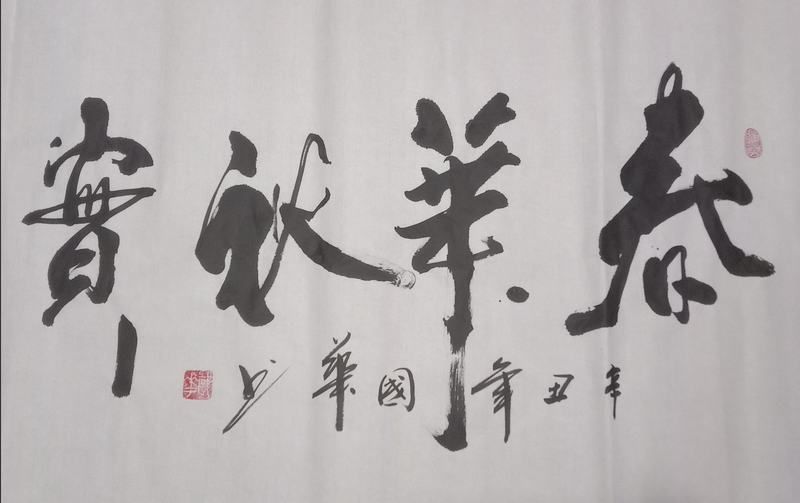 春華秋實
辛丑年國華书